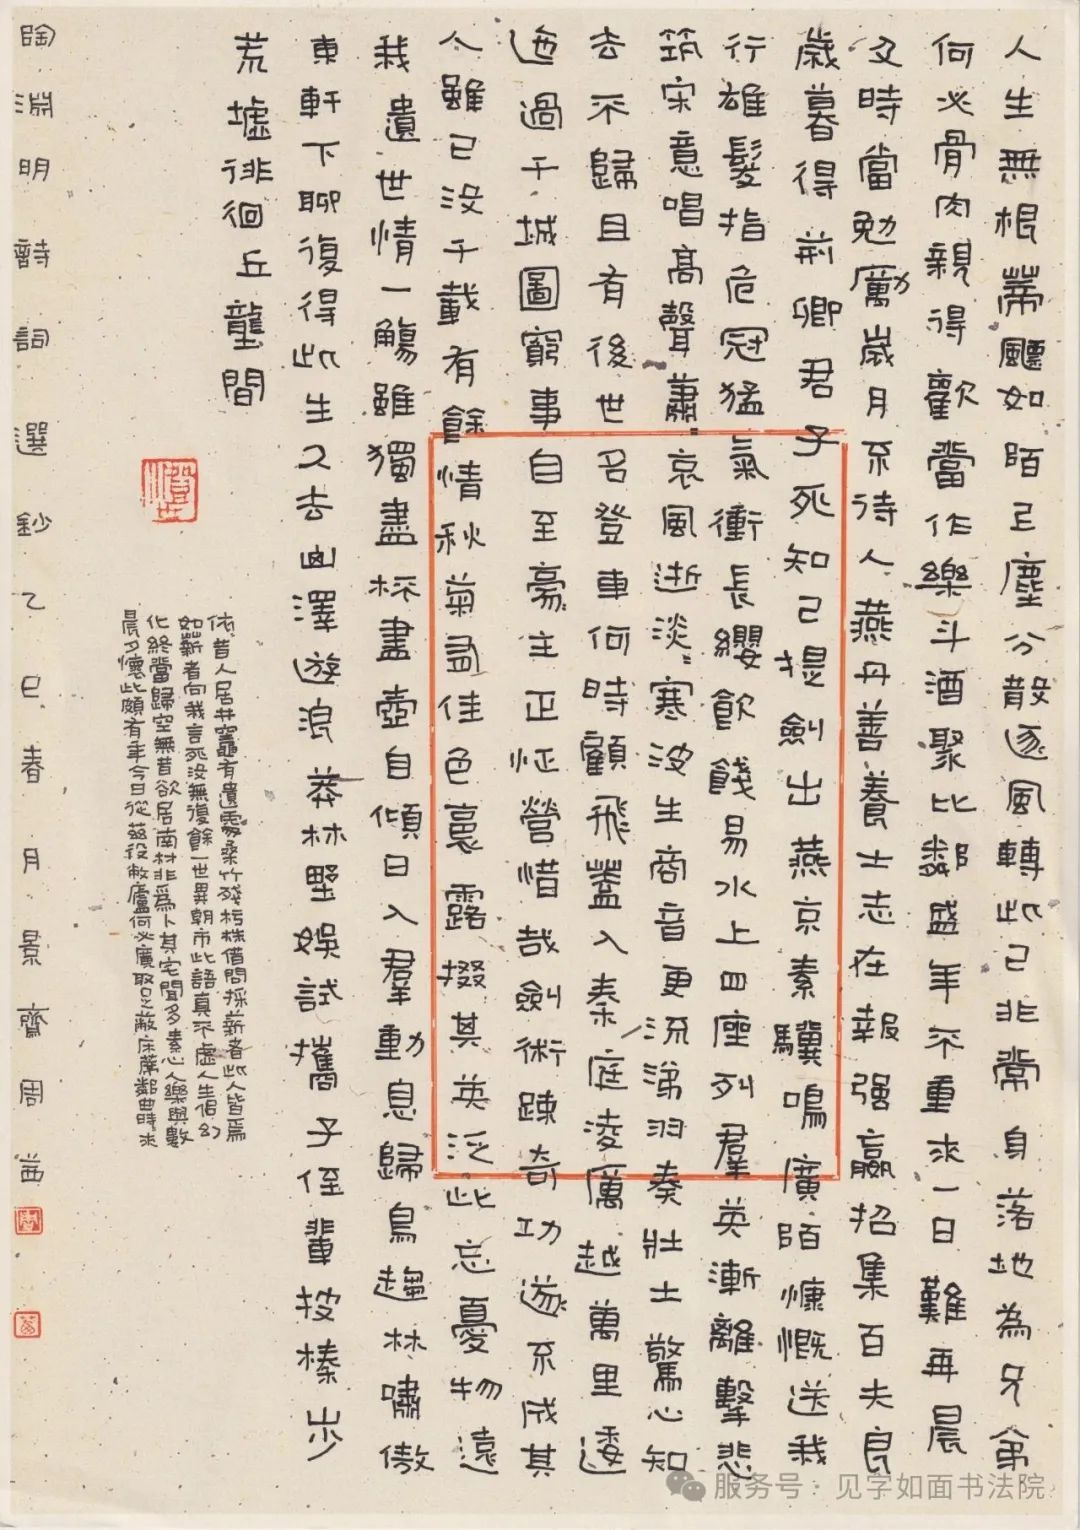 人生無根蒂飄如陌上塵分散逐風轉此已非常身落地為兄弟
何必骨肉親得歡當作樂斗酒聚比鄰盛年不重來一日難再晨
及時當勉勵歲月不待人燕丹善養士志在報强嬴招集百夫良
歲暮得荊卿君子死知己提劍出燕京素驥鳴廣陌慷慨送我
行雄髮指危冠猛氣衝長纓飲餞易水上四座列羣英漸離擊悲
筑宋意唱高聲蕭〃哀風逝淡〃寒波生商音更流涕羽奏壯士驚心知
去不歸且有後世名登車何時顧飛蓋入秦庭凌厲越萬里逶
迤過千城圖窮事自至豪主正怔營惜哉劍術疎奇功遂不成其
人雖已沒千載有餘情秋菊有佳色裛露掇其英泛此忘憂物遠
我遺世情一觴雖獨盡杯盡壺自傾日入羣動息歸鳥趨林嘯傲
東軒下聊復得此生久去山澤遊浪莽林野娛試攜子侄輩披榛步
荒墟徘徊丘壟間
依〃昔人居井竈有遺處桑竹殘朽株借問採薪者此人皆焉
如薪者向我言死沒無復餘一世異朝市此語真不虛人生似幻
化終當歸空無昔欲居南村非為卜其宅聞多素心人樂與數
晨夕懷此頗有年今日從茲役敝廬何必廣取足蔽床蓆鄰曲時來
陶淵明詩詞選鈔乙巳春月景齋周茜
服务号：见字如面书法院